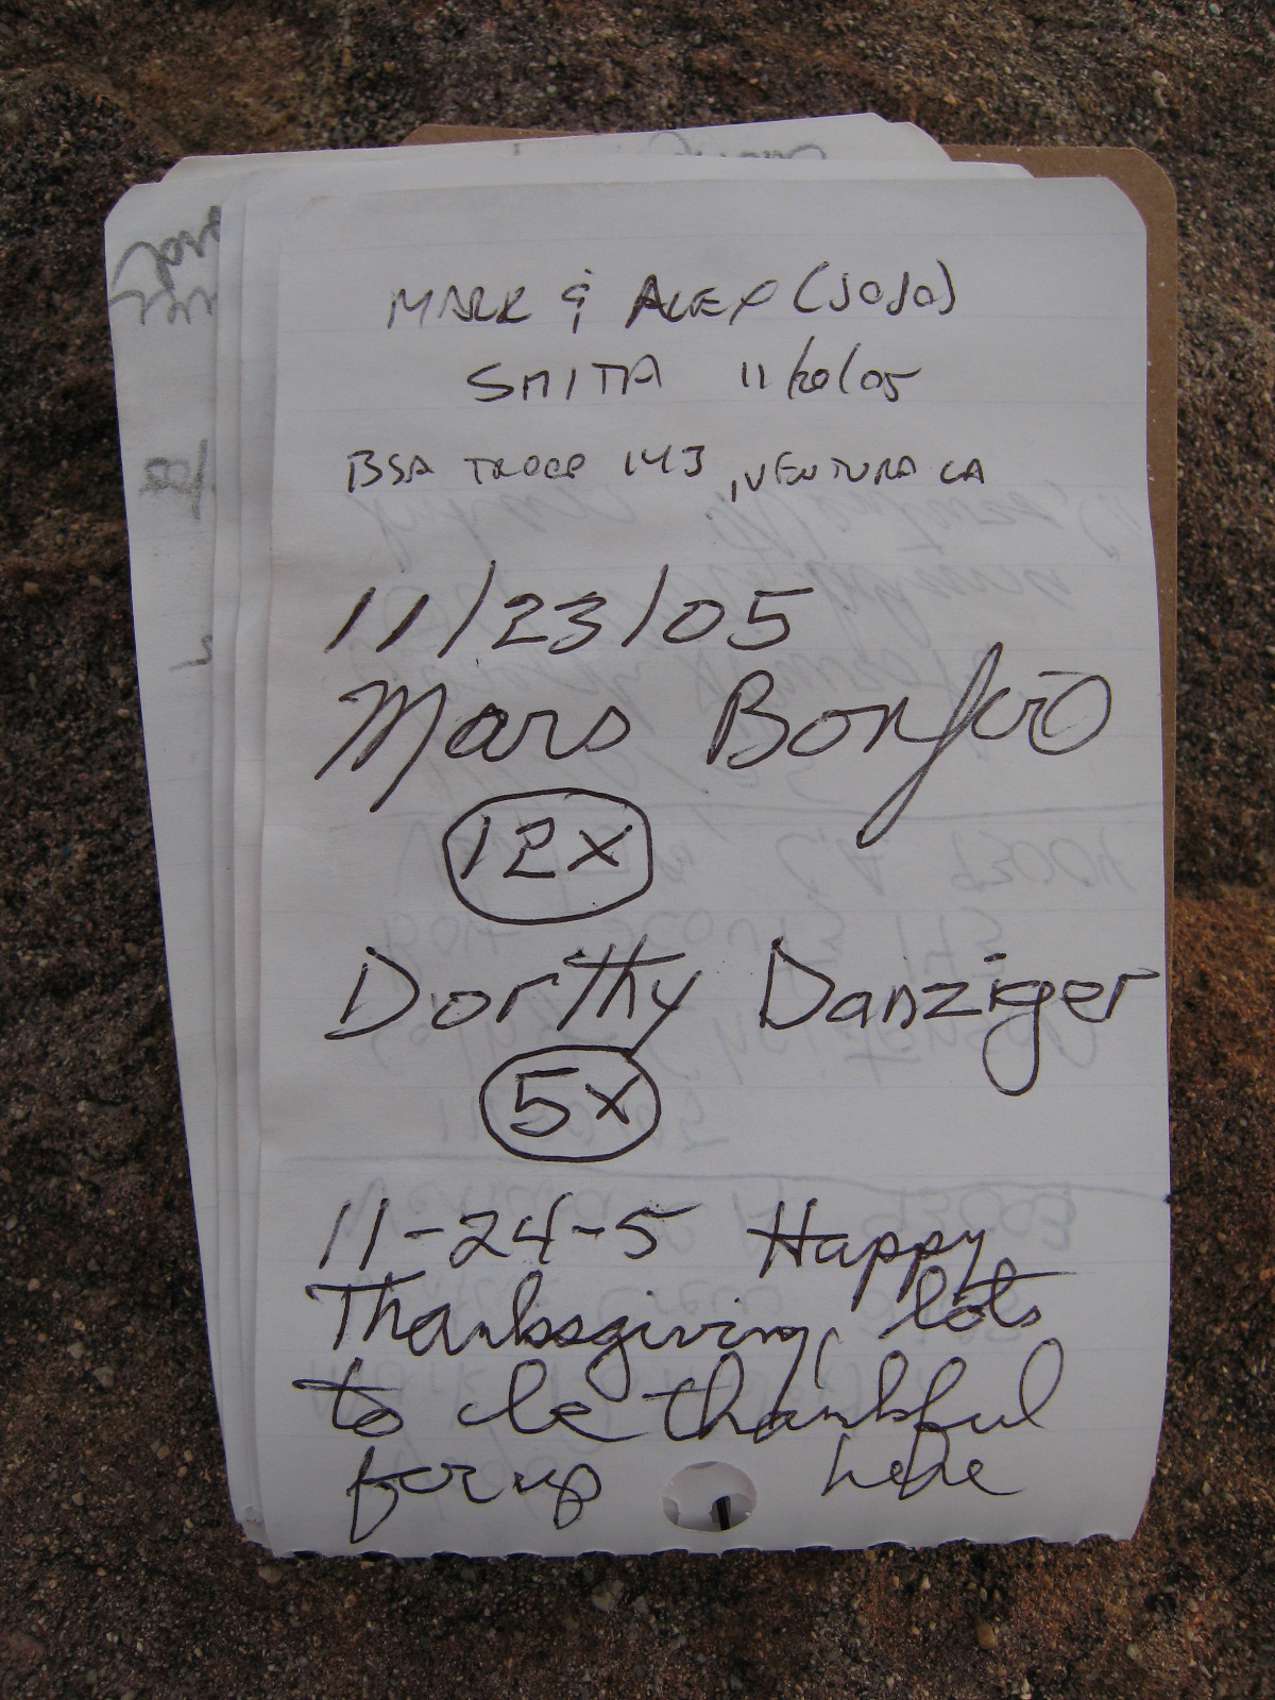 MARK & ALEX (JOJO)
SMITH 11/20/05
BSA TROOP 143, VENTURA CA
11/23/05
Mars Bonfio
12x
Dorthy Danziger
5x
11-24-5 Happy
Thanksgiving, lots
to be thankful
for up here